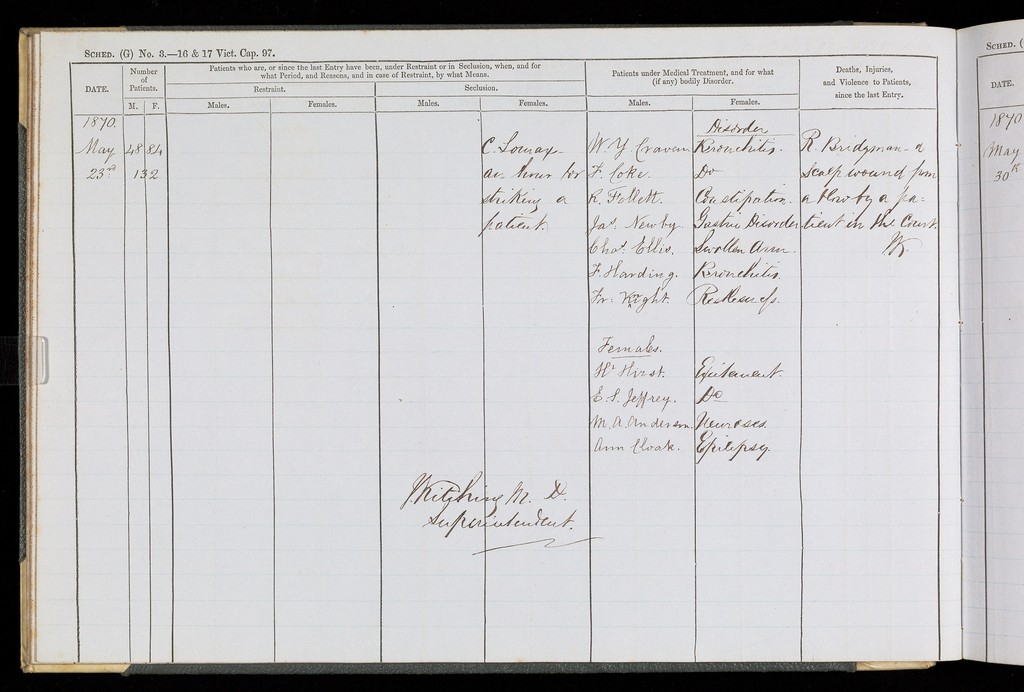 SCHED. (G) No. 3.—16 & 17 Vict. Cap. 97.
DATE.
Number of Patients.
M. F.
Patients who are, or since the last Entry have been, under Restraint or in Seclusion, when, and for
what Period, and Reasons, and in case of Restraint, by what Means.
Restraint. Seclusion.
Males. Females. Males. Females.
Patients under Medical Treatment, and for what
(if any) bodily Disorder.
Males. Females.
Deaths, Injuries,
and Violence to Patients,
since the last Entry.
1870.
May 48 84
23rd 132
C. Lomax
an hour for
striking a
patient.
Disorder
W. Y. Craven Bronchitis.
F. Coke. Do
R. Follett. Constipation.
Jas. Newby Gastric Disorder
Chas. Ellis. Swollen Arm.
F. Harding. Bronchitis.
Fr. Wright. Restlessness.
Females.
Ht Hirst. Excitement.
E. S. Jeffrey. Do
M. A. Anderson. Neuroses.
Ann Cloak. Epilepsy.
R. Bridgman - a
scalp wound from
a blow by a pa-
tient in the Court.
JK
J. Kitching M. D.
Superintendent.
SCHED. (
DATE.
1870
May
30th